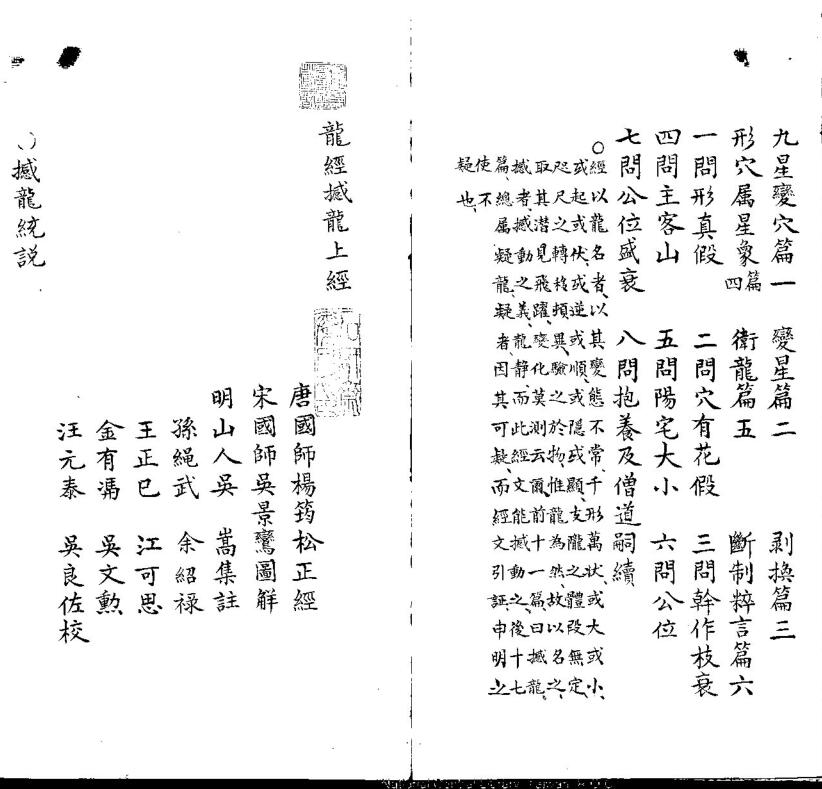 九星變穴篇一 變星篇二 剥換篇三
形穴属星象篇四 衛龍篇五 斷制粹言篇六
一問形真假 二問穴有花假 三問幹作枝衰
四問主客山 五問陽宅大小 六問公位
七問公位盛衰 八問抱養及僧道嗣續
○經以龍名者、以其變態不常、千形萬狀、或大或小、
或起或伏、或逆或順、或隱或顯、支隴之體段無定、
咫尺之轉移頻異、驗之於物、惟龍為然、故以名之、
取其潛見飛躍、變化莫測云爾、前十一篇、曰撼龍、
撼者、撼動之義、龍静、而此經文能撼動之、後十七
篇、總属疑龍、疑者、因其可疑、而經文引証、申明之
使不
疑也、
龍經撼龍上經
唐國師楊筠松正經
宋國師吳景鸞圖解
明山人吳 嵩集註
孫繩武 余紹祿
王正已 江可思
金有馮 吳文勲
汪元泰 吳良佐校
○撼龍統説